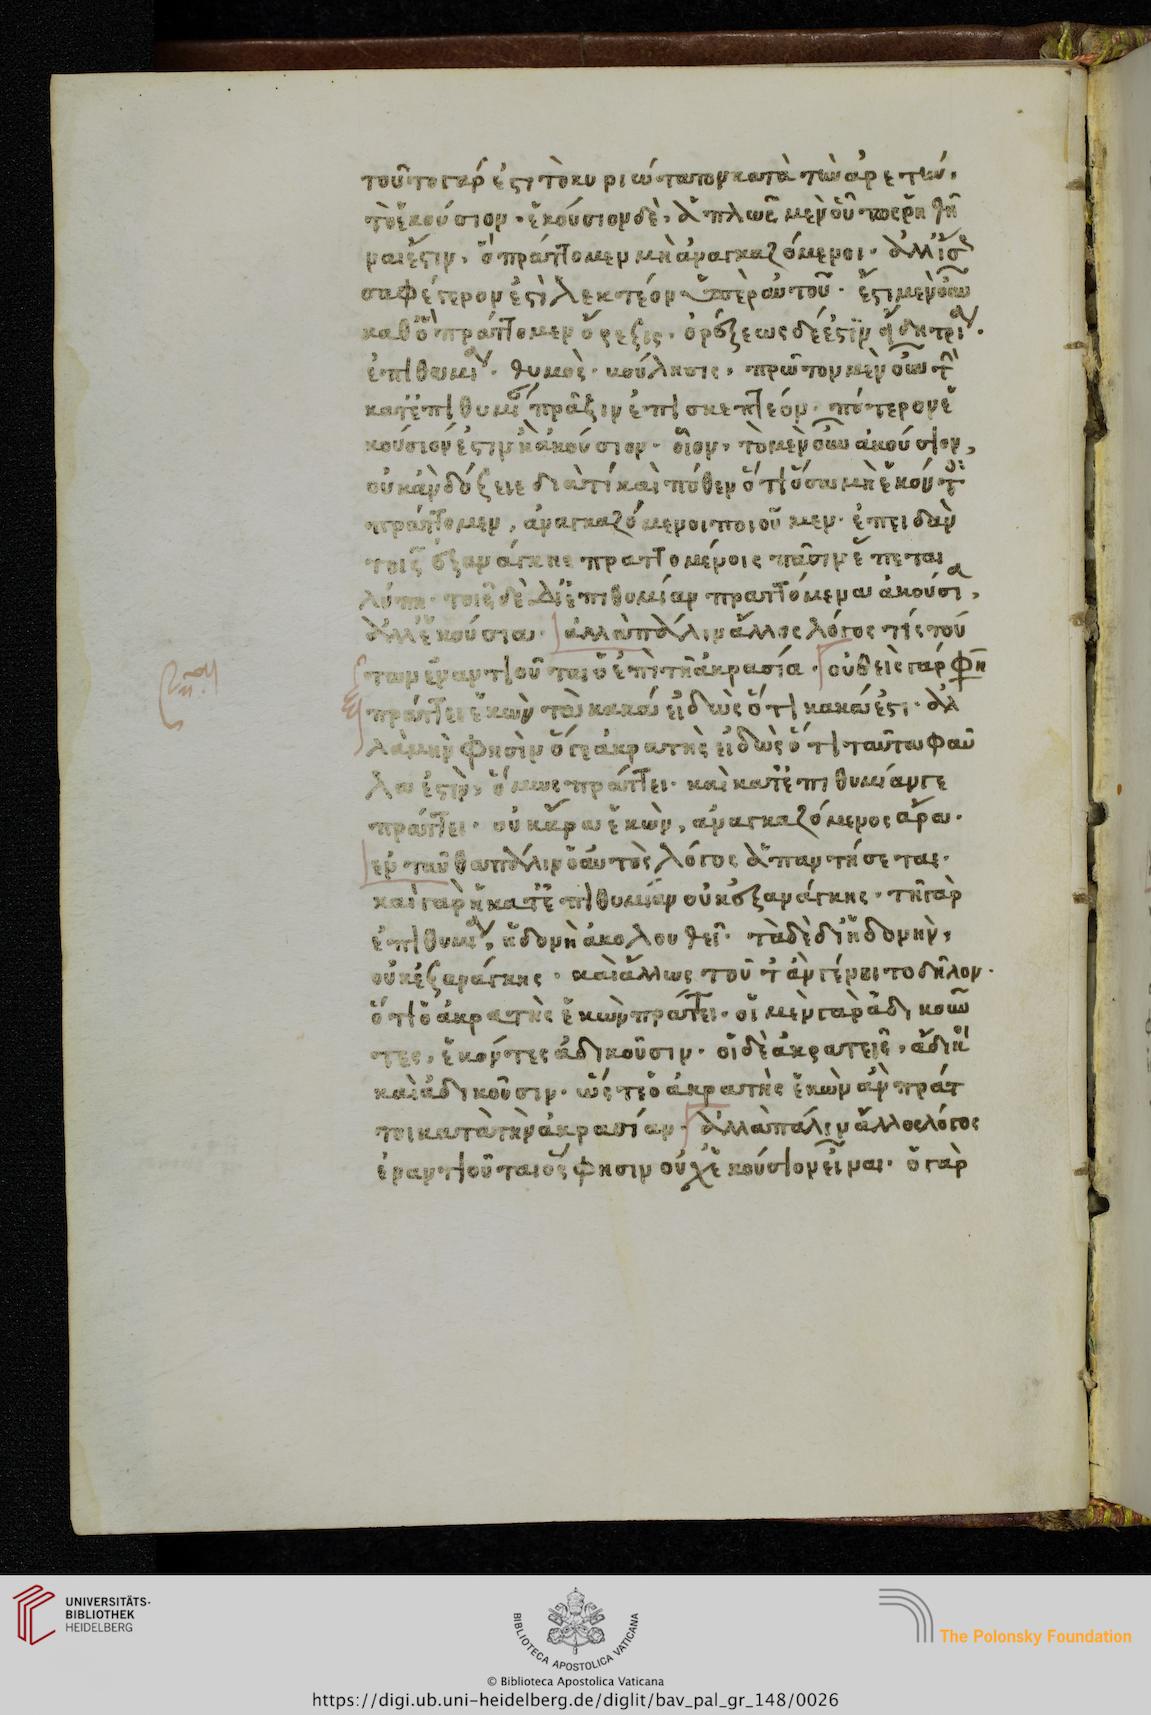 τοῦτο γάρ ἐστι τὸ κυριώτατον κατὰ τὴν ἀρετήν,
τὸ ἑκούσιον. ἑκούσιον δὲ, ἁπλῶς μὲν οὕτως ῥηθῆ
ναι ἔστιν, ὃ πράττομεν μὴ ἀναγκαζόμενοι. ἀλλ' ἴσως
σαφέστερον ἐστὶ λεκτέον ὑπὲρ αὐτοῦ. ἔστι μὲν οὖν
καθ' ὃ πράττομεν ὄρεξις. ὀρέξεως δέ ἐστιν εἴδη τρία.
ἐπιθυμία. θυμὸς. βούλησις. πρῶτον μὲν οὖν τὴν
κατ' ἐπιθυμίαν πρᾶξιν ἐπισκεπτέον. πότερον ἑ
κούσιόν ἐστιν ἢ ἀκούσιον. οἷον, τὸ μὲν οὖν ἀκούσιον,
οὐκ ἂν δόξειε διὰ τί καὶ πόθεν ὅτι ὅσα μὴ ἑκόντες
πράττομεν, ἀναγκαζόμενοι ποιοῦμεν. ἐπειδὰν
τοῖς ἐξ ἀνάγκης πραττομένοις πᾶσιν ἕπεται
λύπη. τοῖς δὲ δι' ἐπιθυμίαν πραττόμενα ἀκούσια,
ἀλλ' ἑκούσια. ἀλλὰ πάλιν ἄλλος λόγος τίς τού
των ἐναντιοῦται ὁ ἐπὶ τῆ ἀκρασία. οὐθεὶς γάρ φη
πράττει ἑκὼν τὰ κακά εἰδὼς ὅτι κακά ἐστι. ἀλ
λὰ μὴν φησὶν ὅ γε ἀκρατὴς εἰδὼς ὅτι ταῦτα φαῦ
λα ἐστὶν, ὅμως πράττει. καὶ κατ' ἐπιθυμίαν γε
πράττει. οὐκ ἄρα ἑκὼν, ἀναγκαζόμενος ἄρα.
ἐνταῦθα πάλιν ὁ αὐτὸς λόγος ἀπαντήσεται.
καὶ γὰρ ἡ κατ' ἐπιθυμίαν οὐκ ἐξ ἀνάγκης. τῆ γὰρ
ἐπιθυμία, ἡδονὴ ἀκολουθεῖ. τὰ δὲ δι' ἡδονὴν,
οὐκ ἐξ ἀνάγκης. καὶ ἄλλως τοῦτ' ἂν γένοιτο δῆλον.
ὅτι ὁ ἀκρατὴς ἑκὼν πράττει. οἱ μὲν γὰρ ἀδικοῦν
τες, ἑκόντες ἀδικοῦσιν. οἱ δὲ ἀκρατεῖς, ἄδικοι
καὶ ἀδικοῦσιν. ὥστε ὁ ἀκρατὴς ἑκὼν ἂν πράτ
τοι κατὰ τὴν ἀκρασίαν. ἀλλὰ πάλιν ἄλλος λόγος
ἐναντιοῦται ὅς φησιν οὐχ ἑκούσιον εἶναι. ὁ γὰρ
UNIVERSITÄTS-
BIBLIOTHEK
HEIDELBERG
BIBLIOTECA APOSTOLICA VATICANA
The Polonsky Foundation
© Biblioteca Apostolica Vaticana
https://digi.ub.uni-heidelberg.de/diglit/bav_pal_gr_148/0026